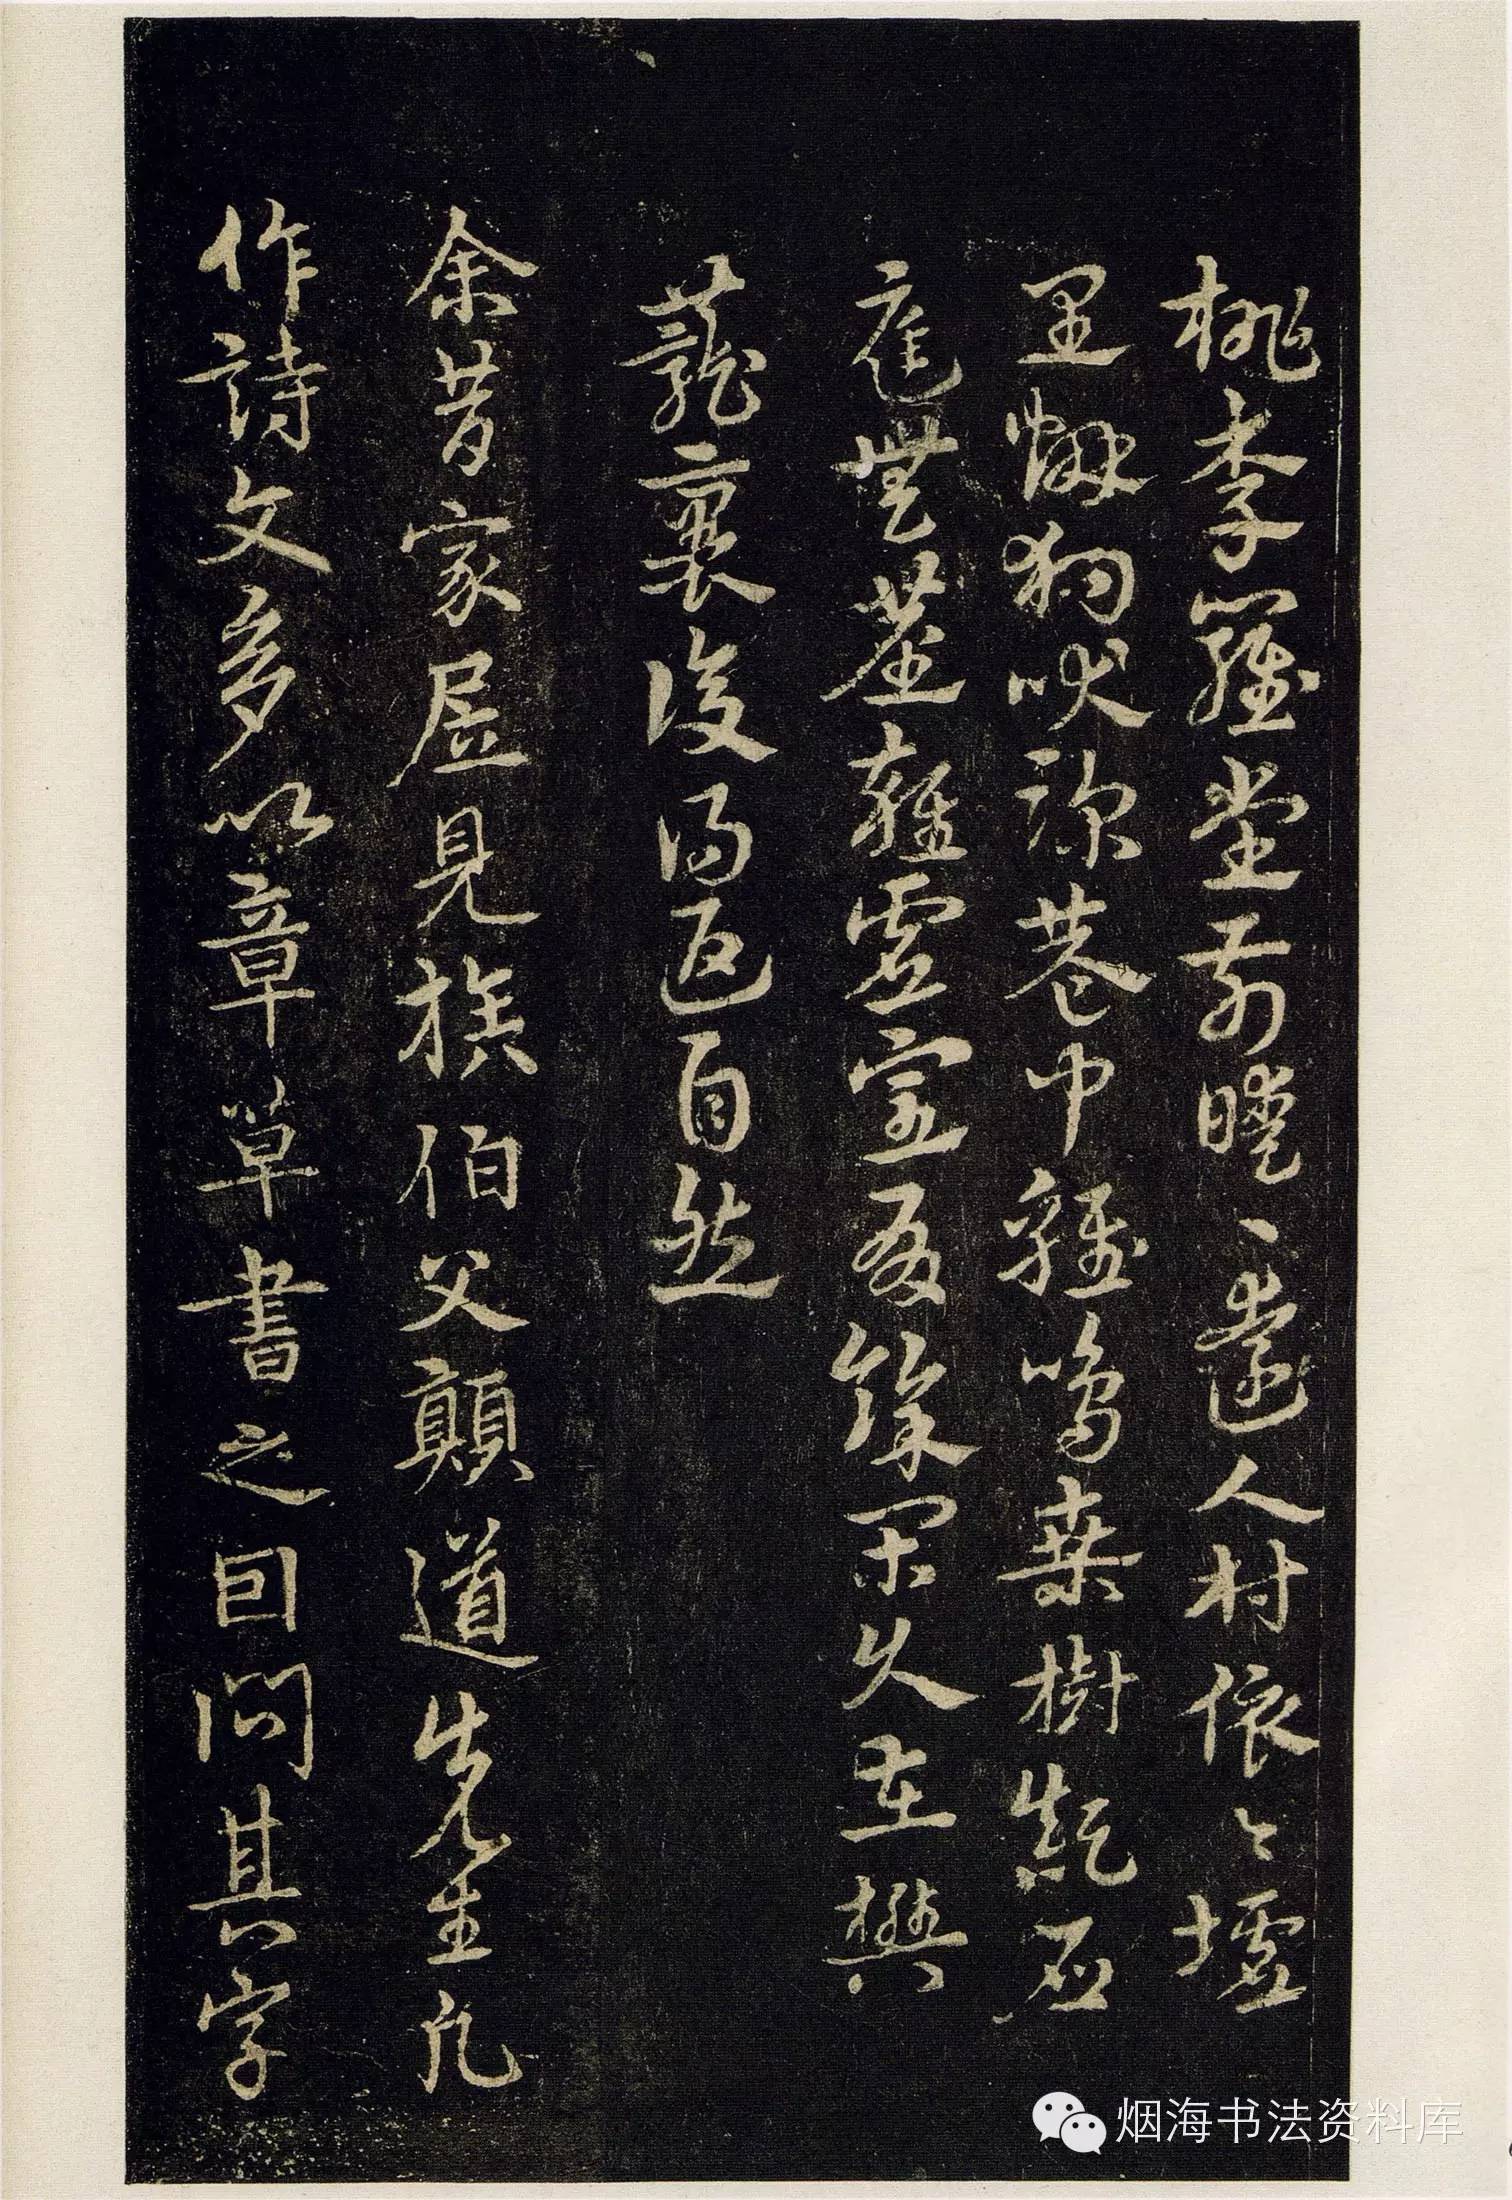 桃李羅堂前曖〻遠人村依〻墟
里煙狗吠深巷中雞鳴桑樹顛戶
庭無塵雜虛室有餘閒久在樊
蘢裏復得返自然
余昔家居見族伯父顛道先生凡
作詩文多以章草書之因問其字
烟海书法资料库